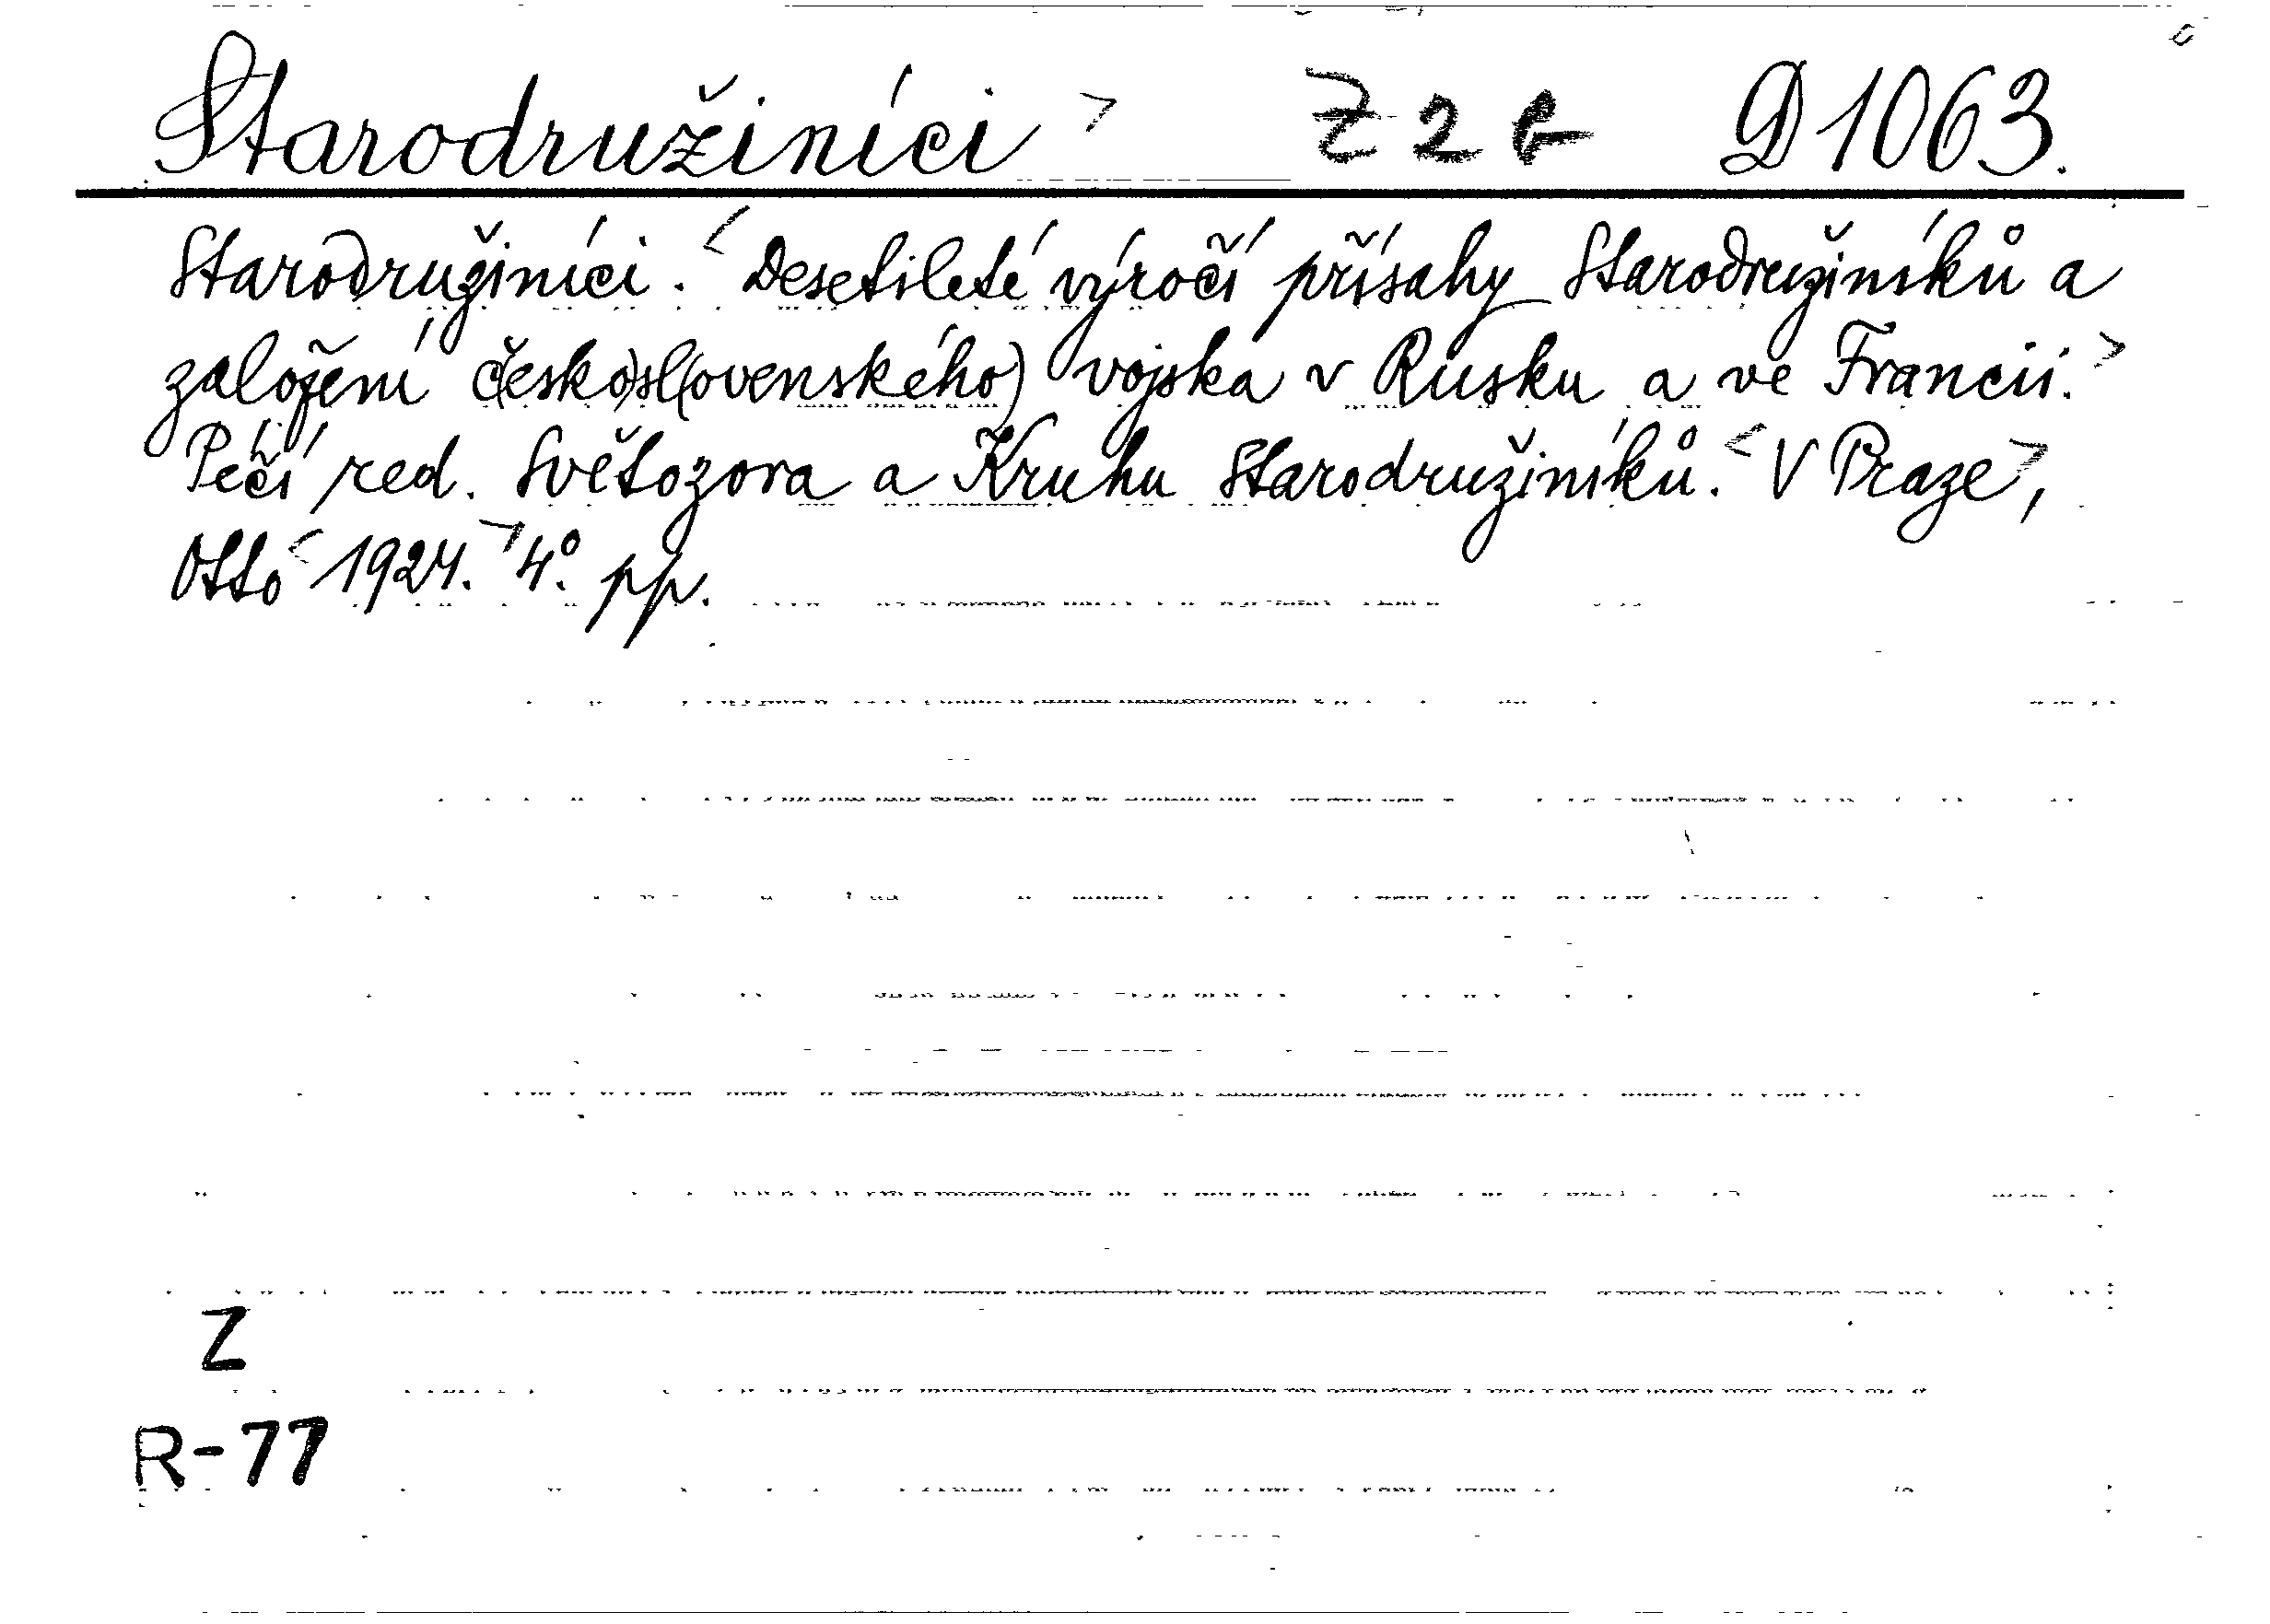 Starodružiníci > Z 2 b D 1063.
Starodružiníci. < Desetileté výročí přísahy Starodružiníků a
založení č(esko)sl(ovenského) vojska v Rusku a ve Francii. >
Péčí red. Světozora a Kruhu Starodružiníků. < V Praze >,
Otto < 1924. > 4°. pp.
Z
R-77